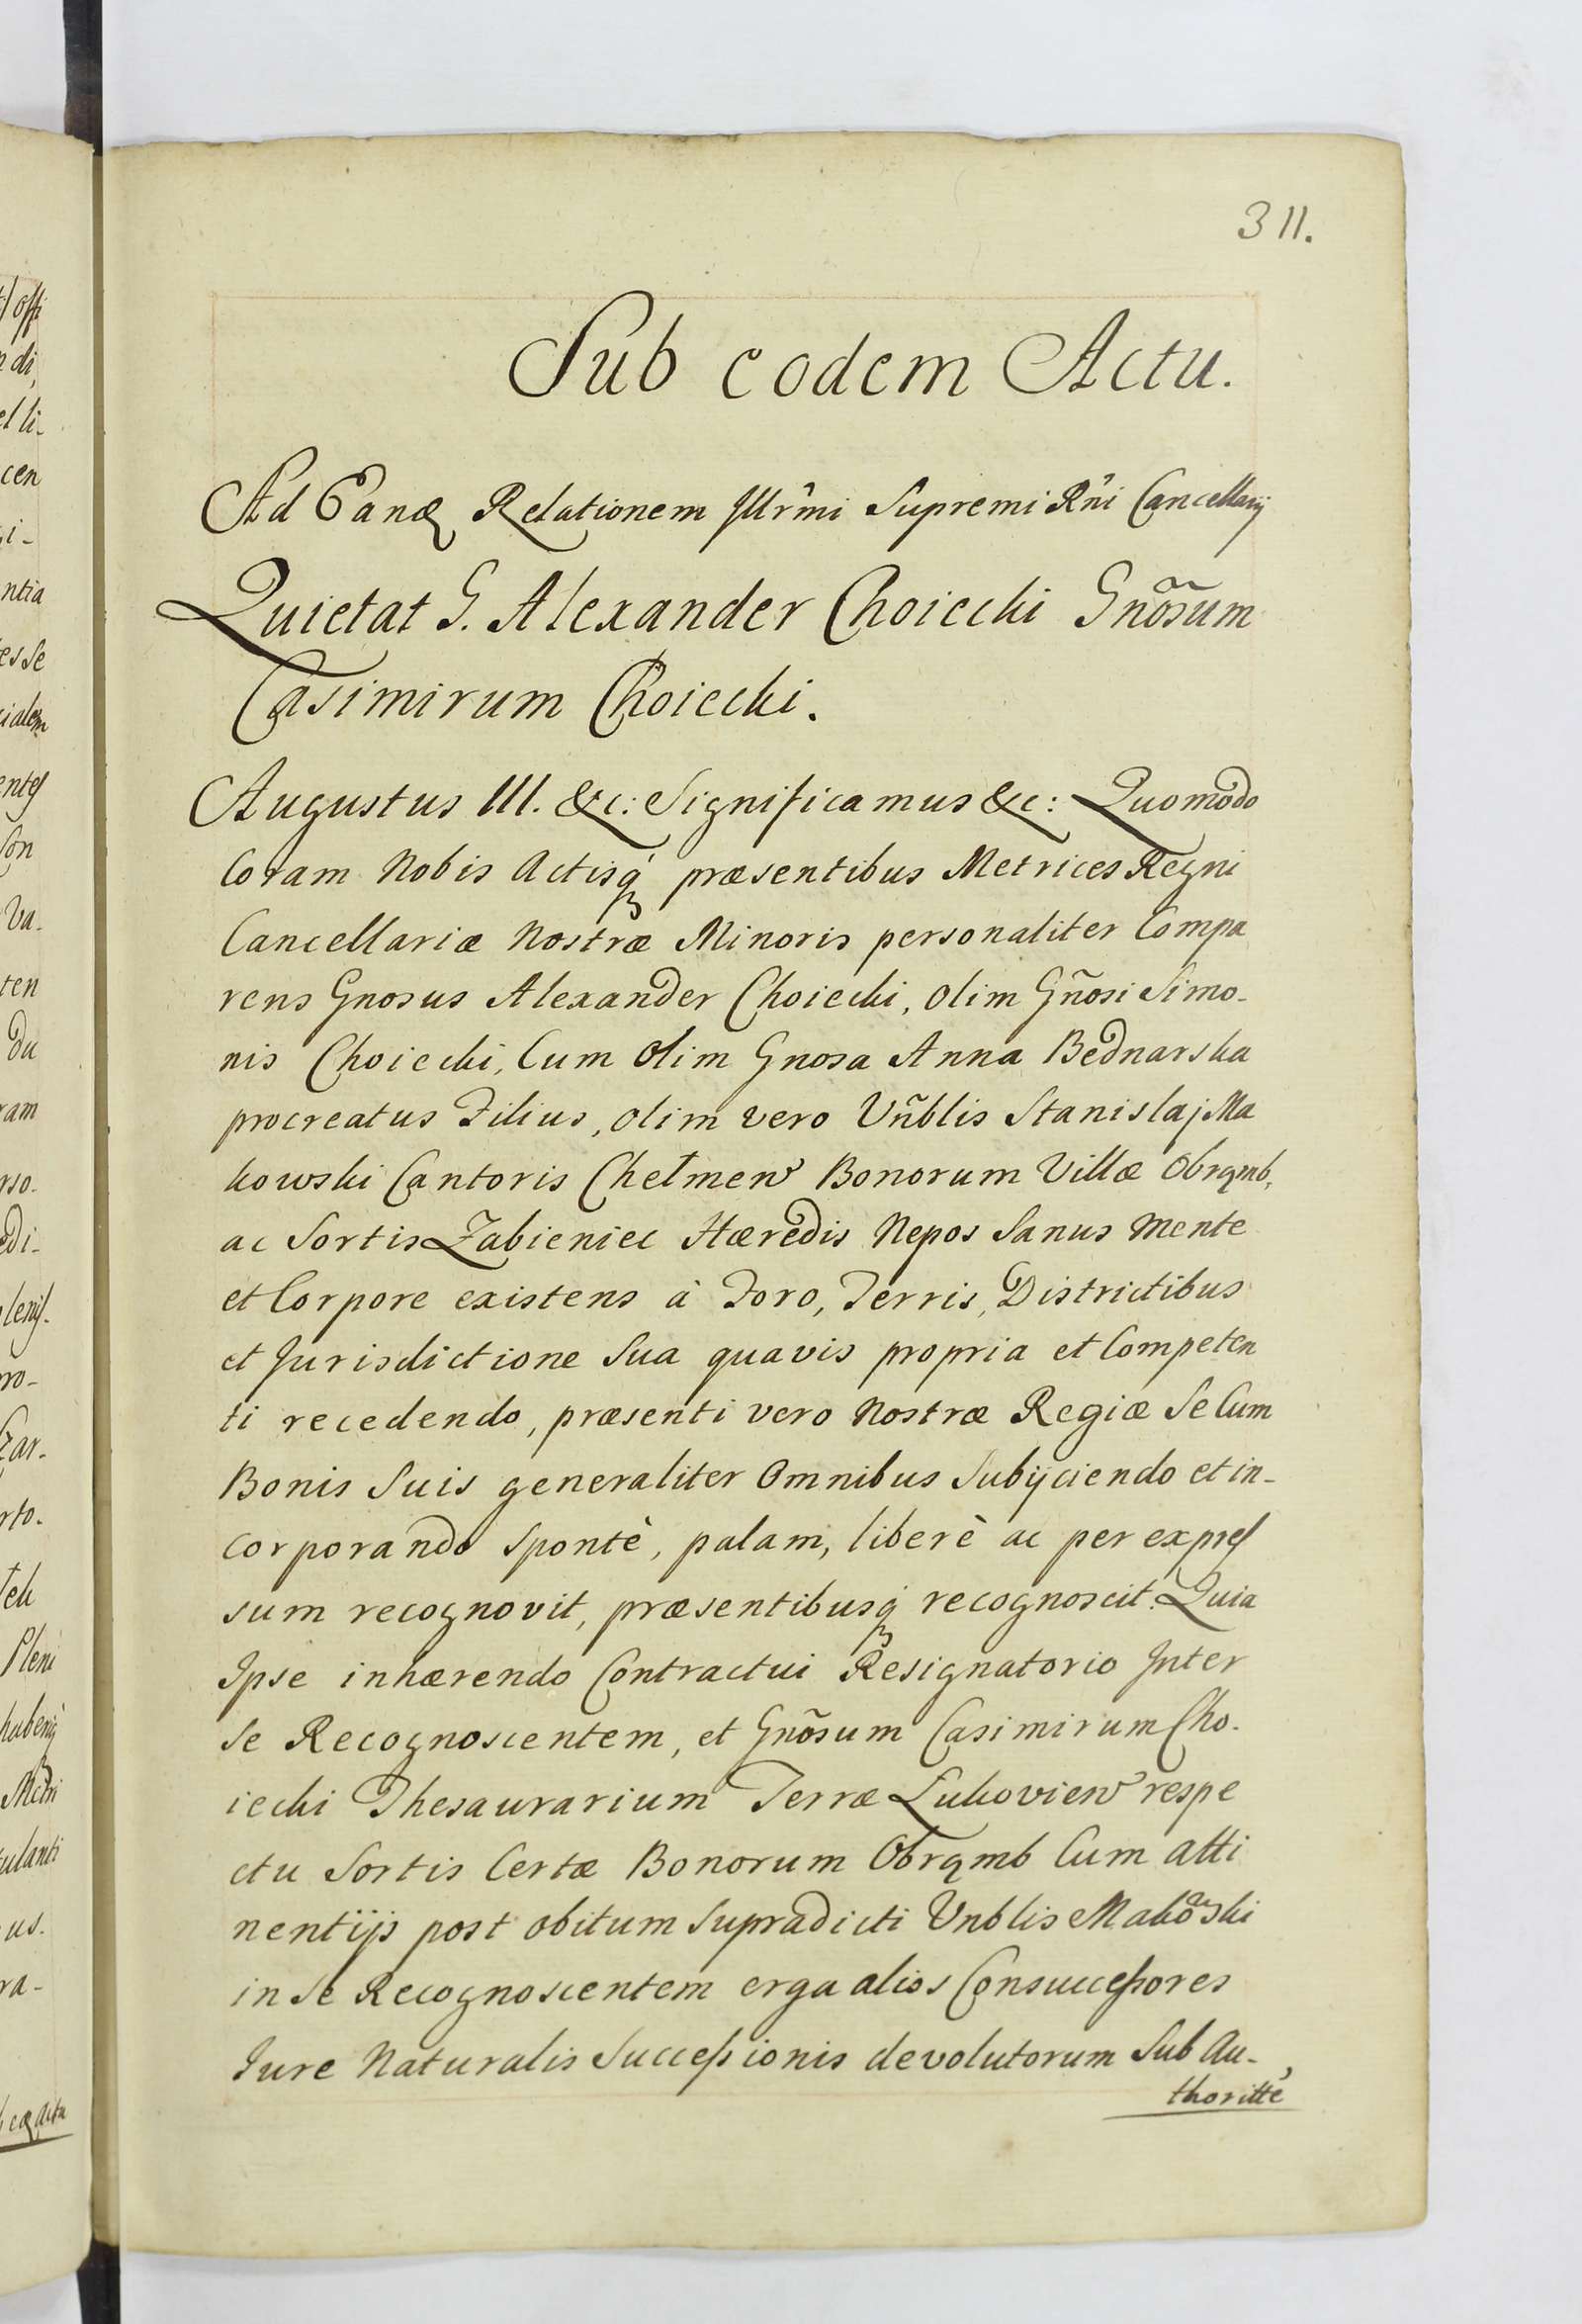 311.
Sub eodem Actu.
Ad Eandꝫ Relationem Jllrm̃i Supremi Rñi Cancellarij
Quietat G. Alexander Choiecki Gnõsum
Casimirum Choiecki.
Augustus III. &c: Significamus &c: Quomodo
Coram Nobis Actisq́ præsentibus Metrices Regni
Cancellariæ Nostræ Minoris personaliter Compa
rens Gnosus Alexander Choiecki, olim Gñosi Simo-
nis Choiecki, Cum olim Gnosa Anna Bednarska
procreatus Filius, olim vero Vñblis Stanislaj Ma
kowski Cantoris Chełmen̄ Bonorum Villæ Obrąmb,
ac Sortis Zabieniec Hæredis Nepos Sanus Mente
et Corpore existens à Foro, Terris, Districtibus
et Jurisdictione Sua quavis propria et Competen
ti recedendo, præsenti vero Nostræ Regiæ Se Cum
Bonis Suis generaliter Omnibus Subijciendo et in-
corporando Spontè, palam, liberè ac per expres
sum recognovit, præsentibusq́ recognoscit. Quia
Ipse inhærendo Contractui Resignatorio Jnter
Se Recognoscentem, et Gnõsum Casimirum Cho-
iecki Thesaurarium Terræ Lukovien̄ respe
ctu Sortis Certæ Bonorum Obrąmb Cum atti
nentijs post obitum Supradicti Vnblis Makõski
in Se Recognoscentem erga alios Consuccessores
Jure Naturalis Successionis devolutorum Sub Au-
thoritte